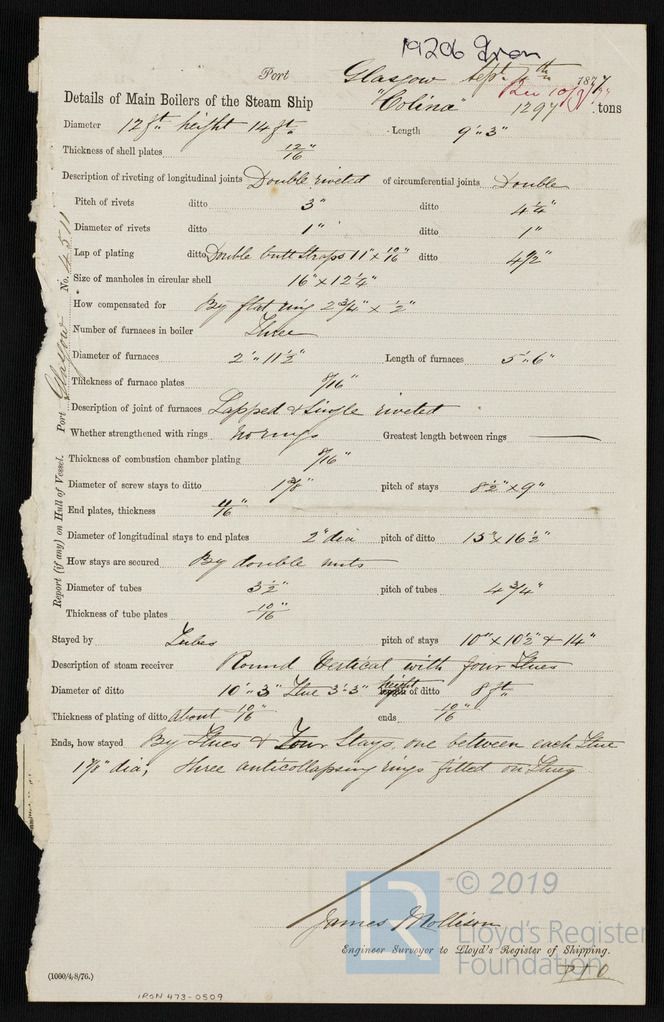 19206 Iron
Port Glasgow Sept 4th 1877
Rec 10/9/77
Details of Main Boilers of the Steam Ship "Colina" 1297 tons
Diameter 12 ft height 14 ft Length 9'.. 3"
Thickness of shell plates 12/16"
Description of riveting of longitudinal joints Double riveted of circumferential joints Double
Pitch of rivets ditto 3" ditto 4 1/4"
Diameter of rivets ditto 1" ditto 1"
Lap of plating ditto Double butt straps 11" x 10/16" ditto 4 1/2"
Size of manholes in circular shell 16" x 12 1/4"
How compensated for By flat ring 2 3/4" x 1/2"
Number of furnaces in boiler Three
Diameter of furnaces 2'.. 11 1/2" Length of furnaces 5'.. 6"
Thickness of furnace plates 8/16"
Description of joint of furnaces Lapped & Single riveted
Whether strengthened with rings No rings Greatest length between rings ——
Thickness of combustion chamber plating 8/16"
Diameter of screw stays to ditto 1 3/8" pitch of stays 8 1/2" x 9"
End plates, thickness /16"
Diameter of longitudinal stays to end plates 2" dia pitch of ditto 15" x 16 1/2"
How stays are secured By double nuts
Diameter of tubes 3 1/2" pitch of tubes 4 3/4"
Thickness of tube plates 10/16"
Stayed by Tubes pitch of stays 10" x 10 1/2" & 14"
Description of steam receiver Round Vertical with four Flues
Diameter of ditto 10'.. 3" Flue 3'.. 3" height length of ditto 8 ft
Thickness of plating of ditto about 10/16" ends 10/16"
Ends, how stayed By Flues & Four Stays, one between each Flue
dia; three anticollapsing rings fitted on Flues
James Mollison
Engineer Surveyor to Lloyd's Register of Shipping.
P T O
(1000/4/8/76.)
IRON 473-0509
Report (if any) on Hull of Vessel. Port Glasgow No. 4511
© 2019
LR
Lloyd's Register
Foundation